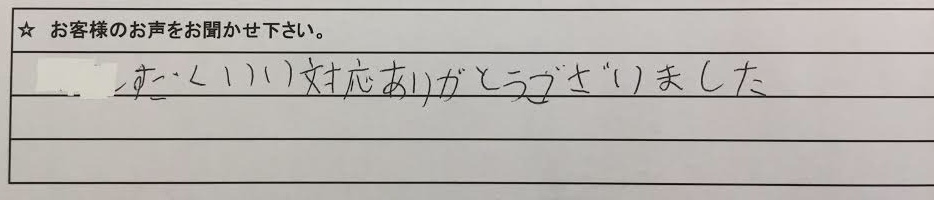 ☆ お客様のお声をお聞かせ下さい。
すごくいい対応ありがとうございました